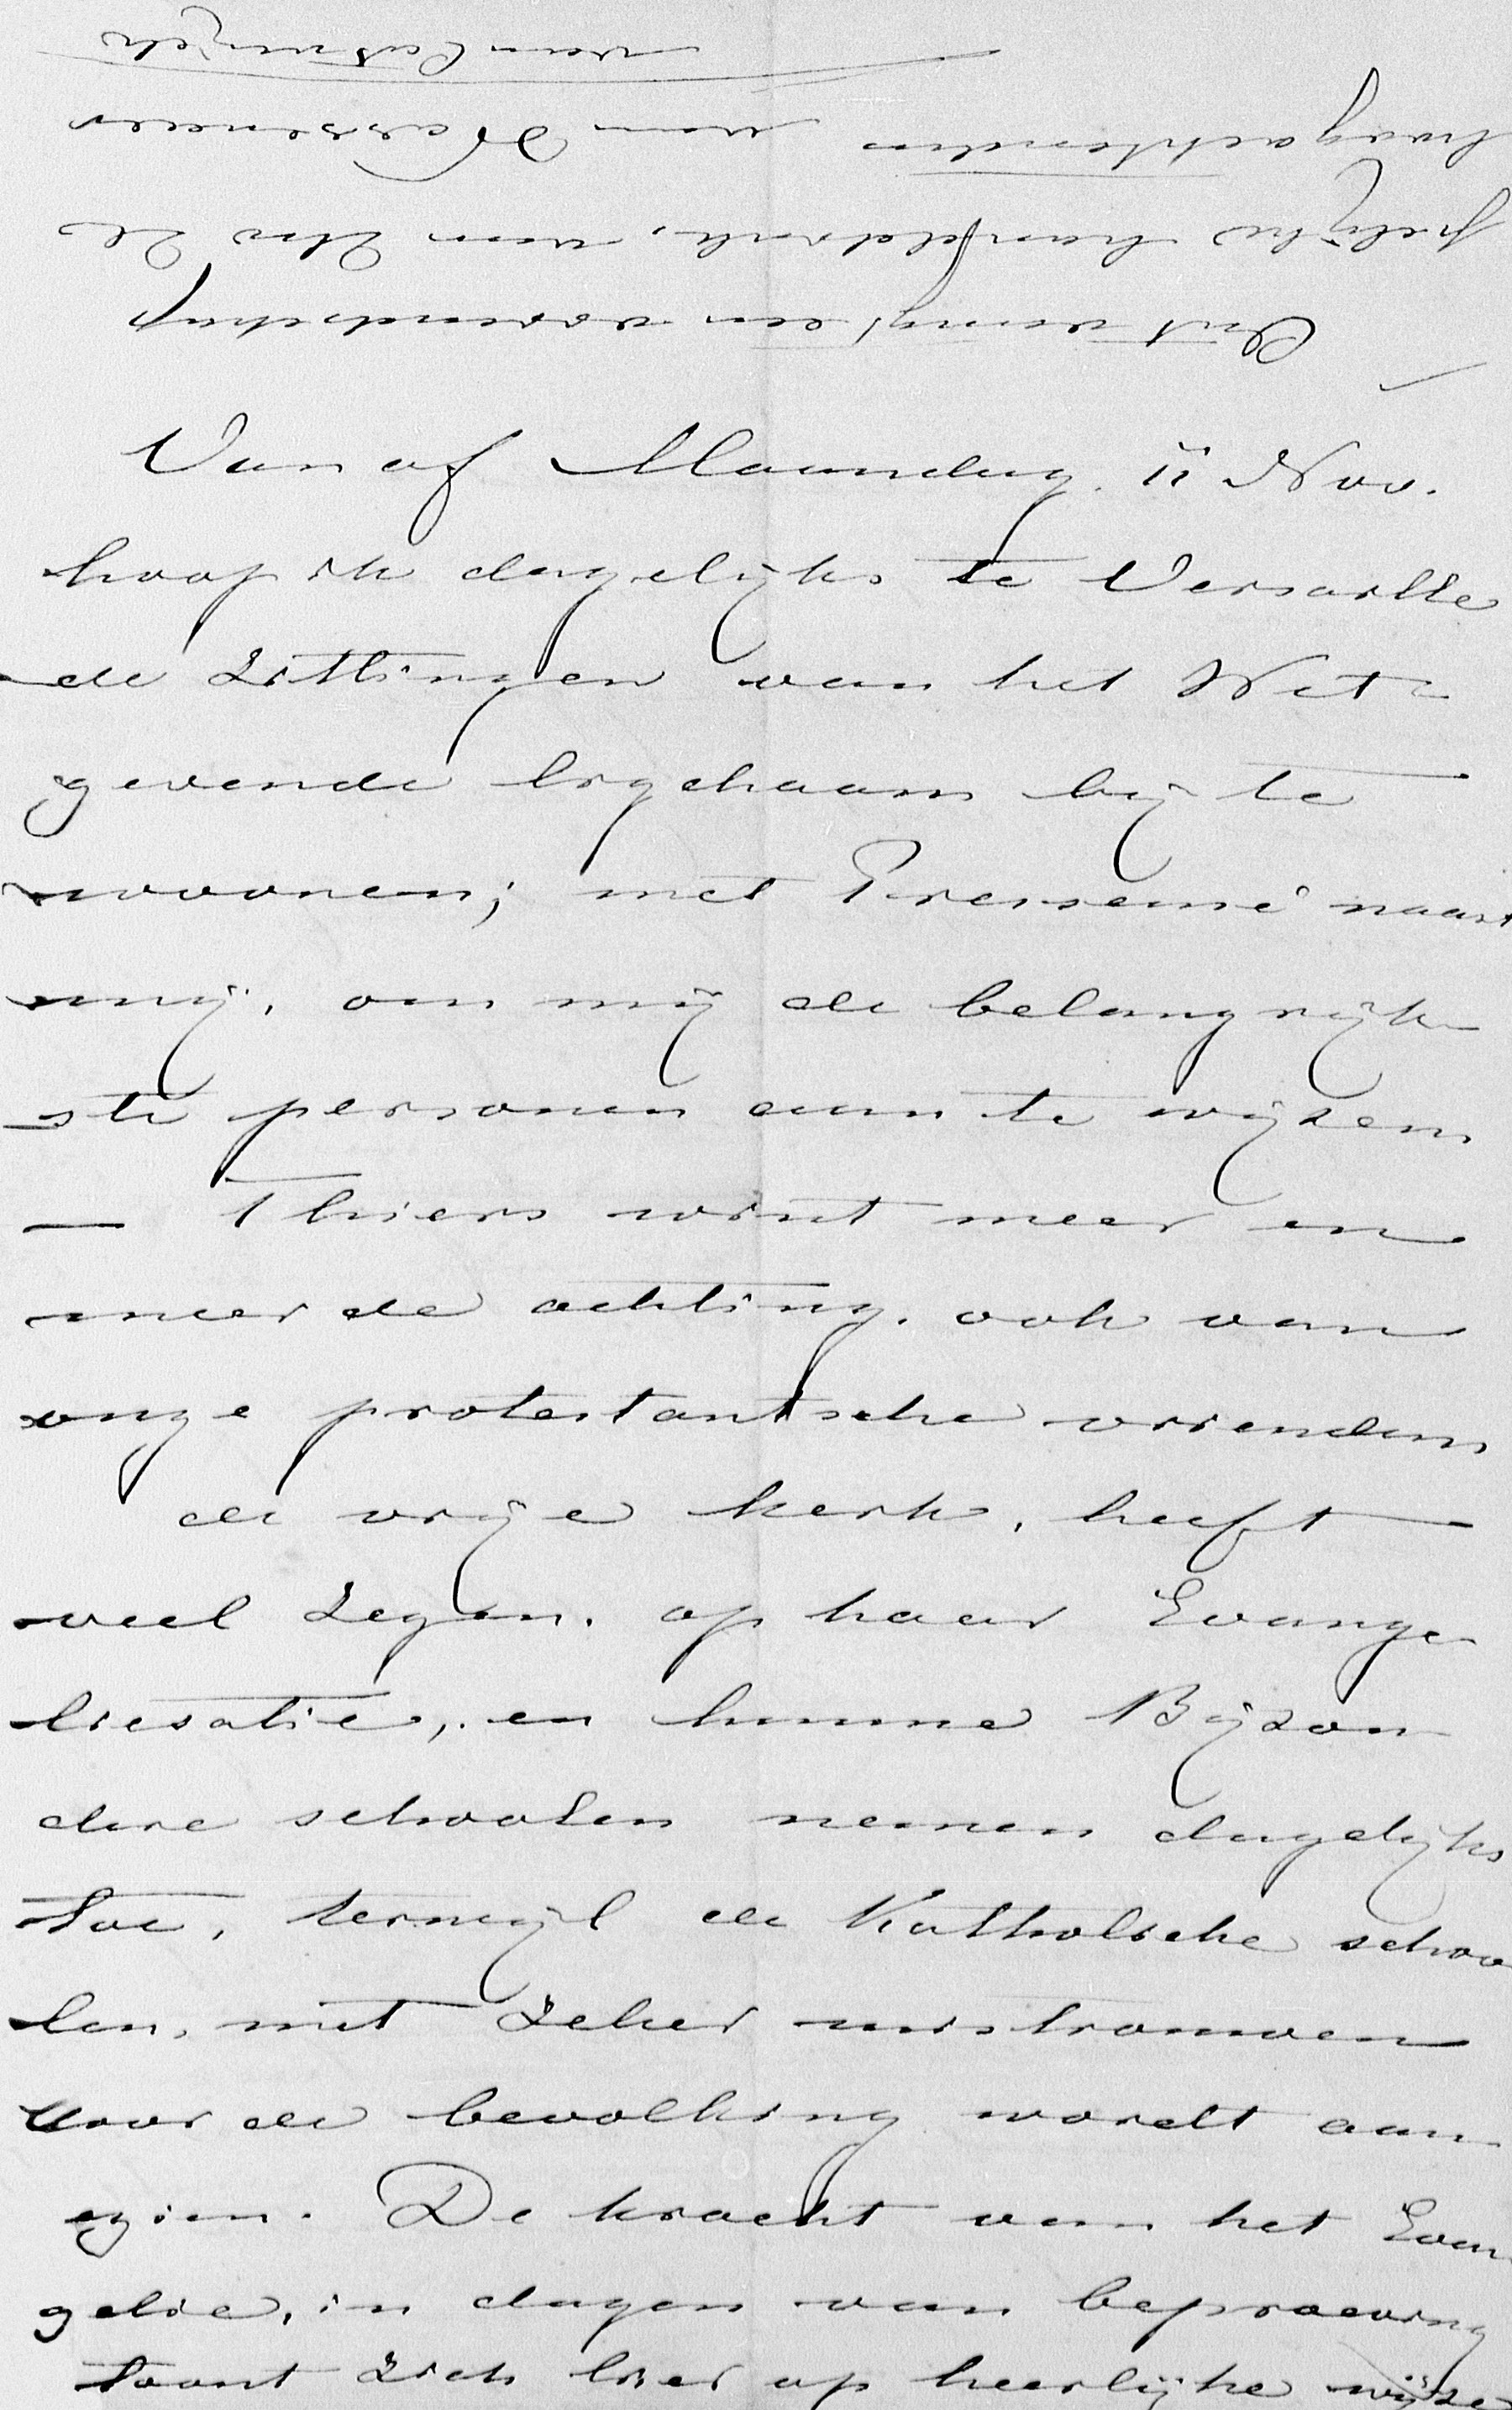 Vanaf Maandag 11 Nov.
hoop ik dagelijks te Versaille
de Zittingen van het Wet=
gevende ligchaam bij te
woonen; met Pressensé naast
mij, om mij de belangrijk
ste personen aan te wijzen
— Thiers wint meer en
meer de achting, ook van
onze protestantsche vrienden
de vrije kerk, heeft
veel Zegen, op haar Evange
liesatie, en hunne Bijzon
dere schoolen nemen dagelijks
toe, terwijl de Katholieke schoo
len, met Zeker mistrouwen
door de bevolking wordt aan
gezien. De kracht van het Evan
gelie, in dagen van beproeving
toont Zich hier op heerlijke wijze
Ontvang, een vriendschap
pelijke handdruk, van Uw Ed
hoogachtenden van Wassenaer
van Catwijck